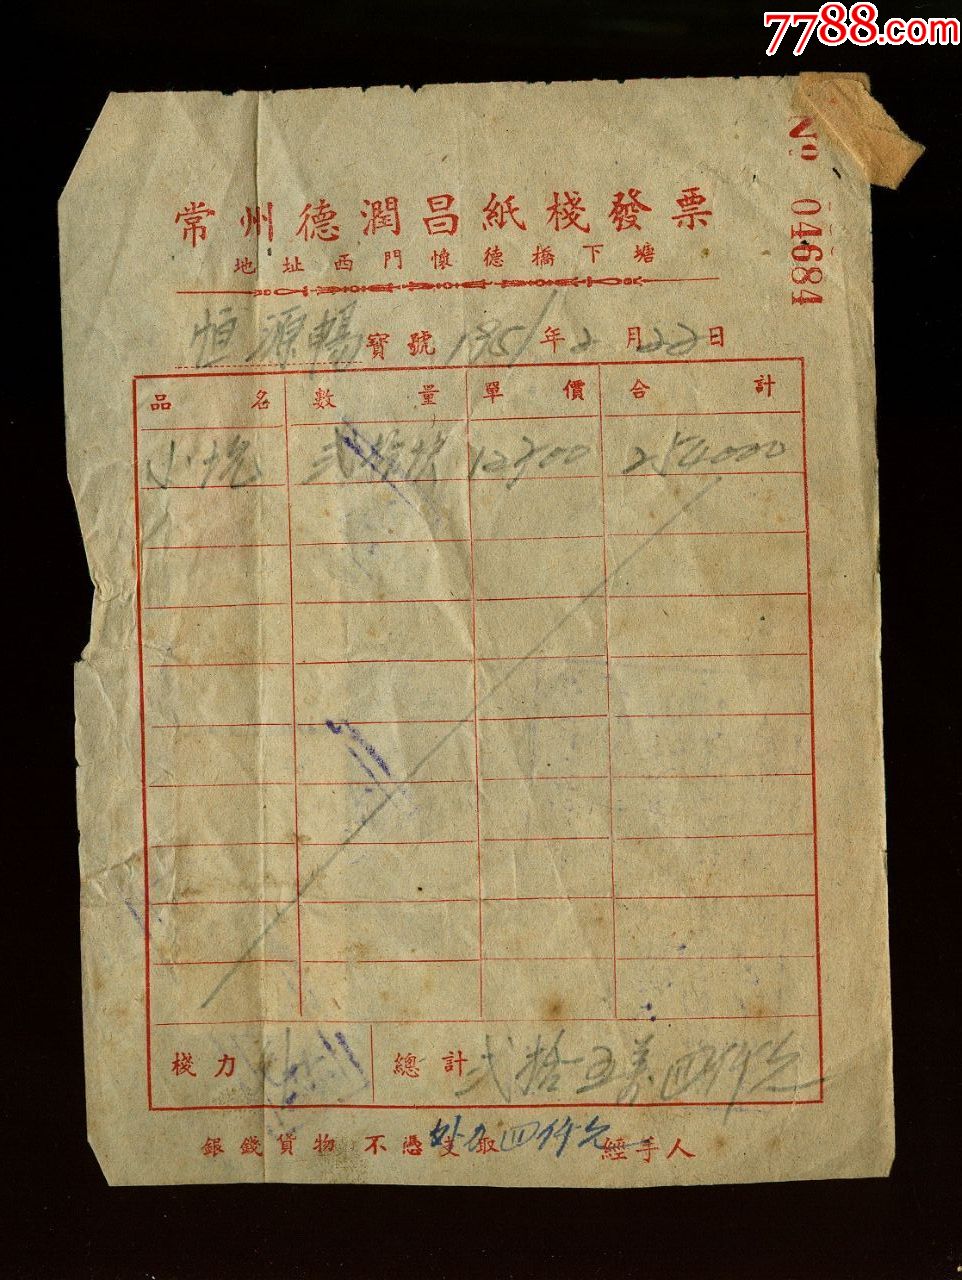 7788.com
No 04684
常州德潤昌紙棧發票
地址西門懷德橋下塘
恒源暢寶號1951年2月22日
品名 數量 單價 合計
小塊 弍拾塊 12700 254000
棧力 總計 弍拾五萬四仟元
銀錢貨物不憑 取 四仟元 經手人